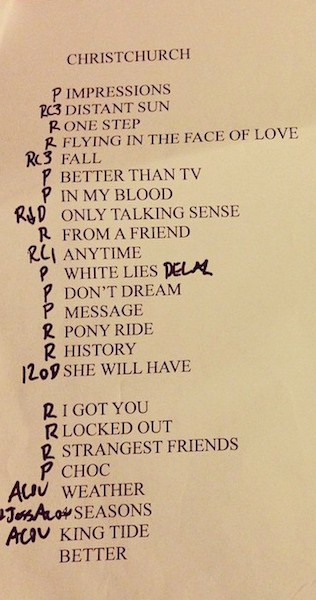 CHRISTCHURCH
P IMPRESSIONS
RC3 DISTANT SUN
R ONE STEP
R FLYING IN THE FACE OF LOVE
RC3 FALL
P BETTER THAN TV
P IN MY BLOOD
R↓D ONLY TALKING SENSE
R FROM A FRIEND
RC1 ANYTIME
P WHITE LIES DELAY
P DON'T DREAM
P MESSAGE
R PONY RIDE
R HISTORY
12OD SHE WILL HAVE
R I GOT YOU
R LOCKED OUT
R STRANGEST FRIENDS
P CHOC
ACOU WEATHER
SEASONS
ACOU KING TIDE
BETTER